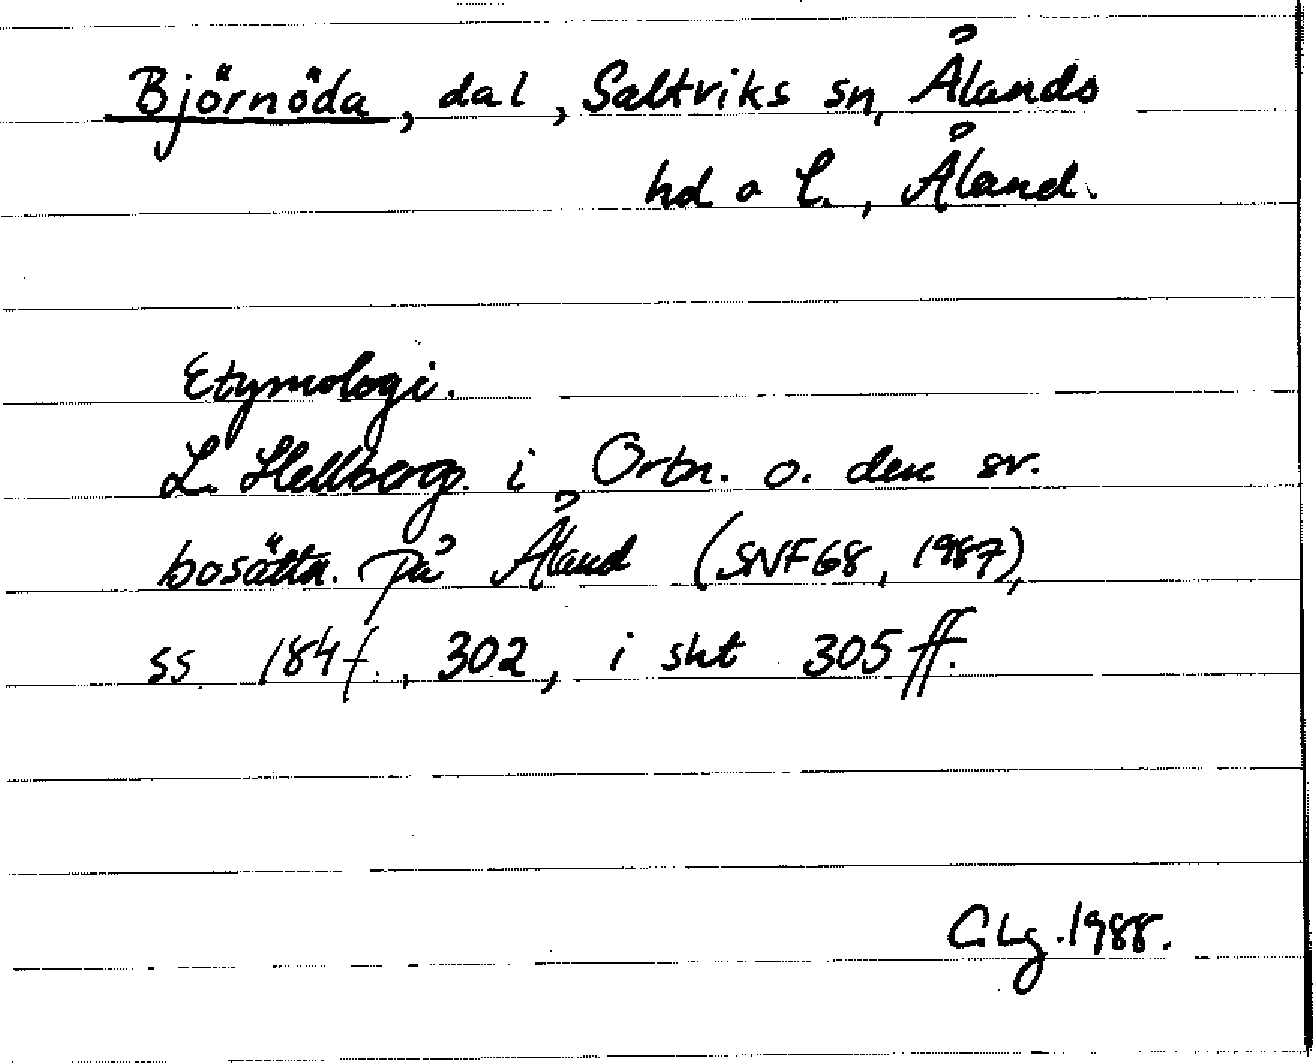 Björnöda, dal, Saltviks sn, Ålands
hd o l., Åland.
Etymologi.
L. Hellberg i Ortn. o. den sv.
bosättn. på Åland (SNF68, 1987),
ss 184f., 302, i skt 305ff.
CLg. 1988.